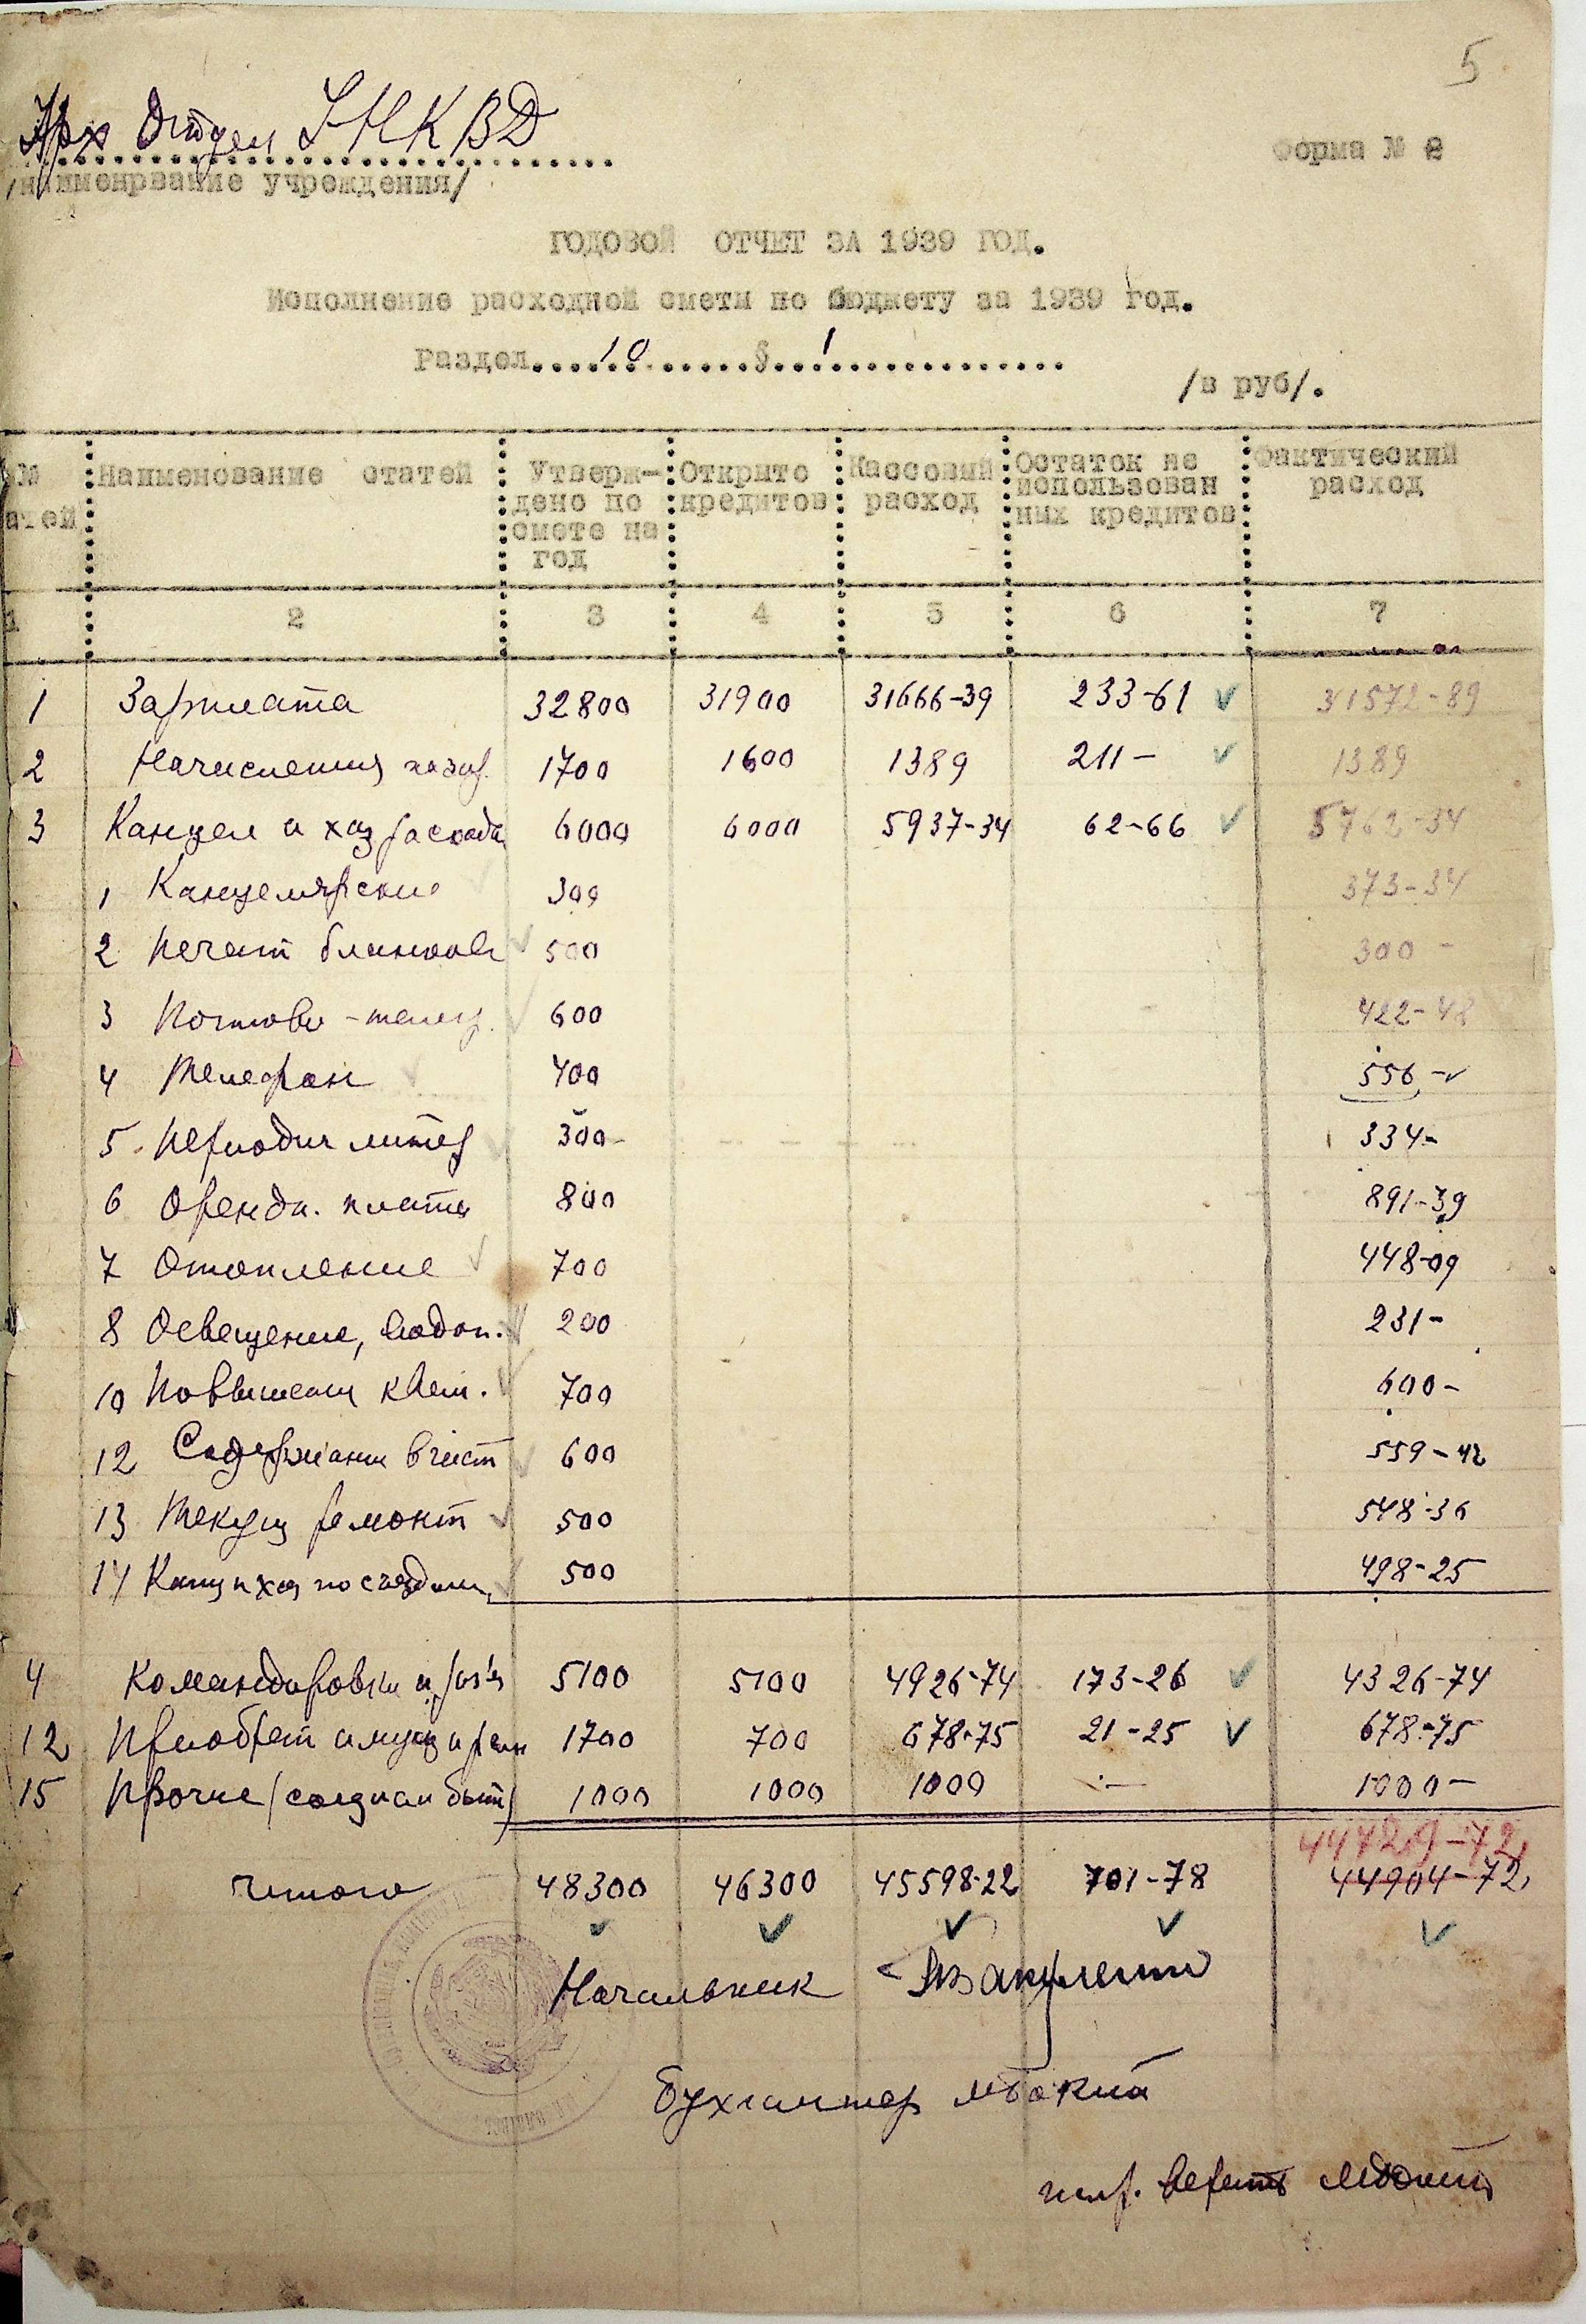 5
Арх Отдел УНКВД
/наименрвание учреждения/
Форма № 2
ГОДОВОЙ ОТЧЕТ ЗА 1939 ГОД.
Исполнение расходной сметы по бюджету за 1939 год.
Раздел....10......§..1................
/в руб/.
№ атей Наименование статей Утверж-дено по смете на год Открыто кредитов Кассовый расход Остаток не использован ных кредитов Фактический расход
1 2 3 4 5 6 7
1 Зарплата 32800 31900 31666-39 233-61 31572-89
2 Начисления на зар. 1700 1600 1389 211- 1389
3 Канцел и хоз расходы 6000 6000 5937-34 62-66 5762-34
1 Канцелярские 300 373-34
2 Печат бланков 500 300-
3 Почтово-телег. 600 422-48
4 Телефон 400 556-
5. Периодич литер 300- 334-
6 Орендн. плата 800 891-39
7 Отопление 700 448-09
8 Освещение, водоп. 200 231-
10 Повышении квал. 700 600-
12 Содержании в чист 600 559-42
13 Текущ ремонт 500 548-36
14 Канц и хоз по 500 498-25
4 Командировки и раз'з 5100 5100 4926-74 173-26 4326-74
12 Приобрет имущ и рем 1700 700 678-75 21-25 678-75
15 Прочие (социал быт) 1000 1000 1000 - 1000-
44729-72
Итого 48300 46300 45598-22 701-78 44904-72
Начальник
Бухгалтер